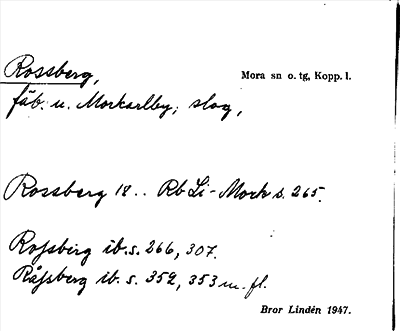 Rossberg, Mora sn o. tg, Kopp. l.
fäb. u. Morkarlby; slog,
Rossberg 18.. Rb Li-Mork s. 265.
Rofsberg ib. s. 266, 307.
Råfsberg ib. s. 352, 353 m. fl.
Bror Lindén 1947.